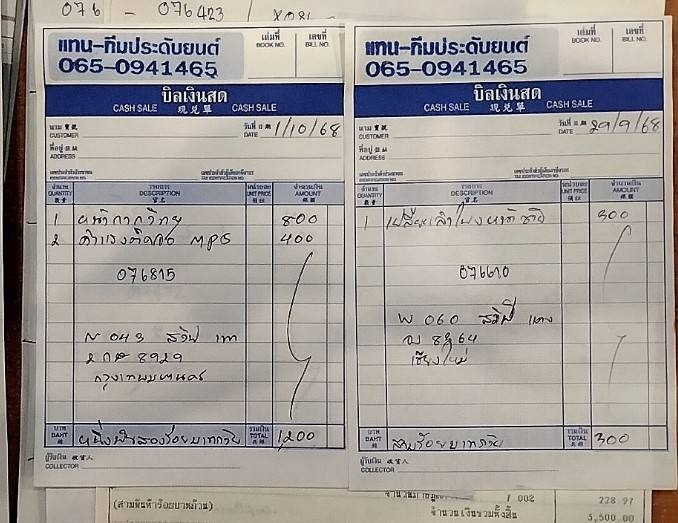 076 - 076423 /
แทน-กีมประดับยนต์
065-0941465
เล่มที่ เลขที่
BOOK NO. BILL NO.
บิลเงินสด
CASH SALE 現兌單 CASH SALE
นาม
CUSTOMER
วันที่
DATE 1/10/68
ที่อยู่
ADDRESS
จำนวน รายการ หน่วยละ จำนวนเงิน
QUANTITY DESCRIPTION UNIT PRICE AMOUNT
1 หน้ากากวิทยุ 800
2 400
076815
043 สวิฟ เทา
8929
กรุงเทพมหานคร
บาท
BAHT หนึ่งพันสองร้อยบาทถ้วน รวมเงิน TOTAL 1,200
ผู้รับเงิน
COLLECTOR
แทน-กีมประดับยนต์
065-0941465
เล่มที่ เลขที่
BOOK NO. BILL NO.
บิลเงินสด
CASH SALE 現兌單 CASH SALE
นาม
CUSTOMER
วันที่
DATE 29/9/68
ที่อยู่
ADDRESS
จำนวน รายการ หน่วยละ จำนวนเงิน
QUANTITY DESCRIPTION UNIT PRICE AMOUNT
1 300
076610
060 สวิฟ แดง
เชียงใหม่
บาท
BAHT สามร้อยบาทถ้วน รวมเงิน TOTAL 300
ผู้รับเงิน
COLLECTOR
1.002 228.97
(สามพันห้าร้อยบาทถ้วน) จำนวนเงินรวมทั้งสิ้น 3,500.00